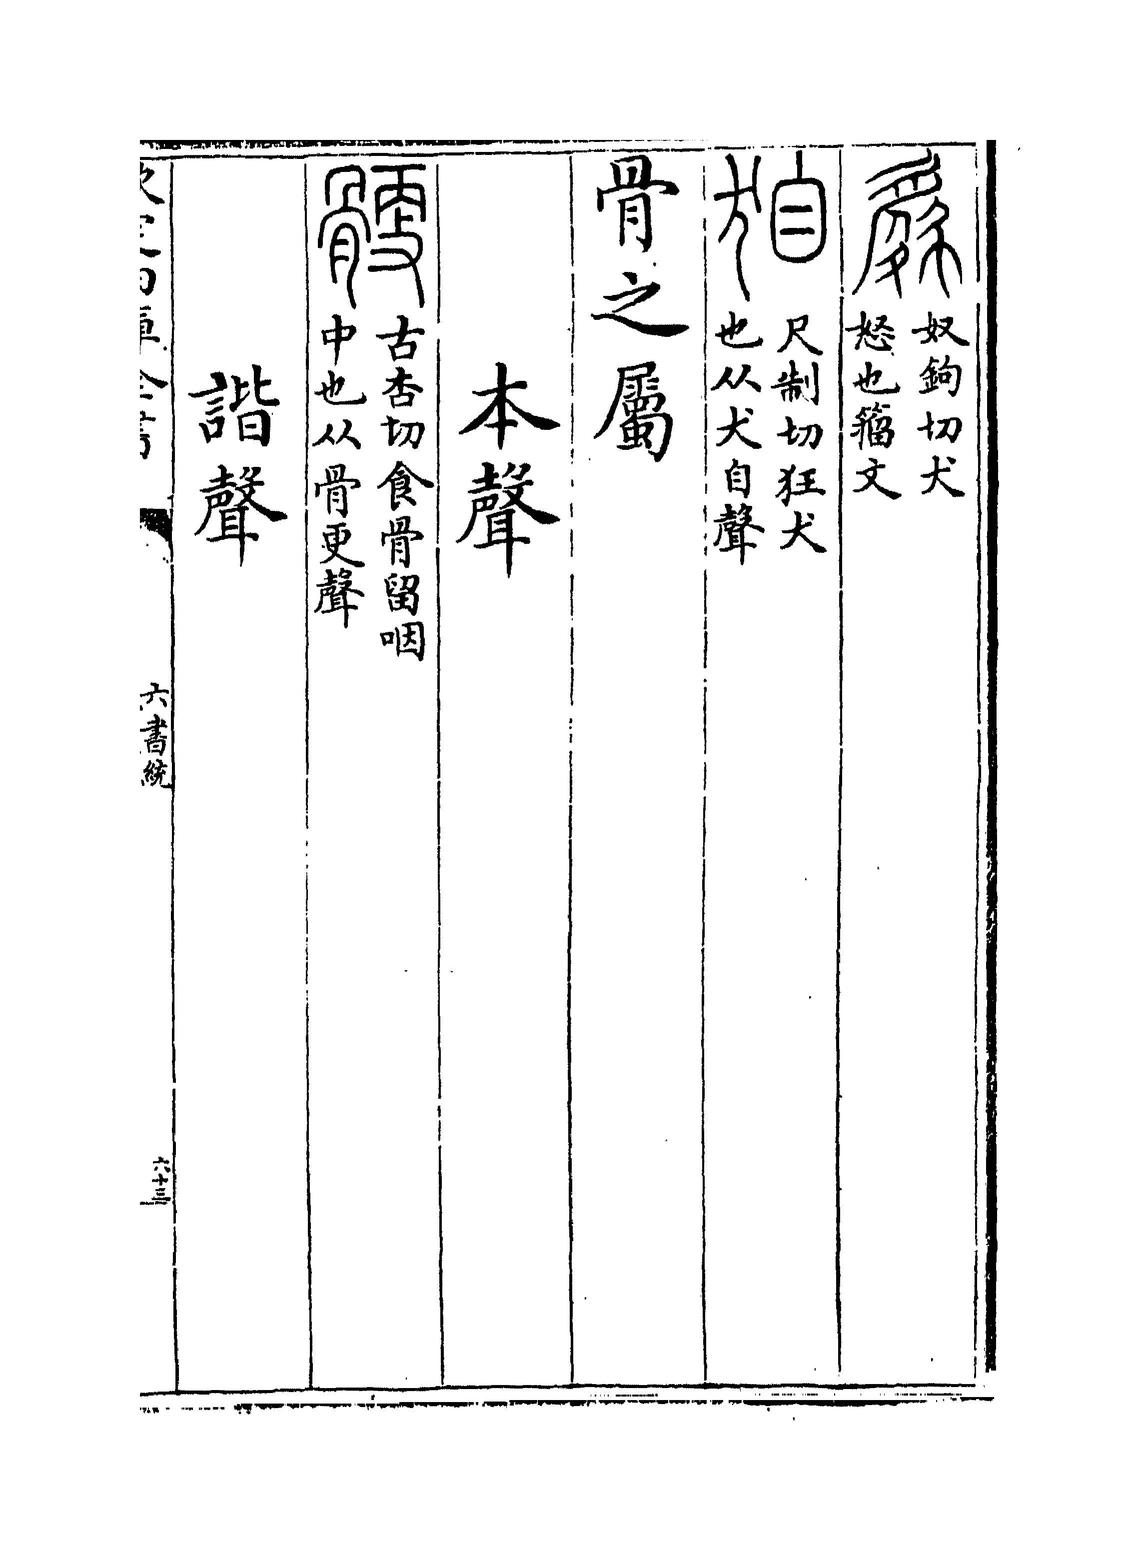 奴鉤切犬
怒也籀文
尺制切狂犬
也从犬自聲
骨之屬
本聲
骾
古杏切食骨留咽
中也从骨更聲
諧聲
欽定四庫全書
六書統
六十三